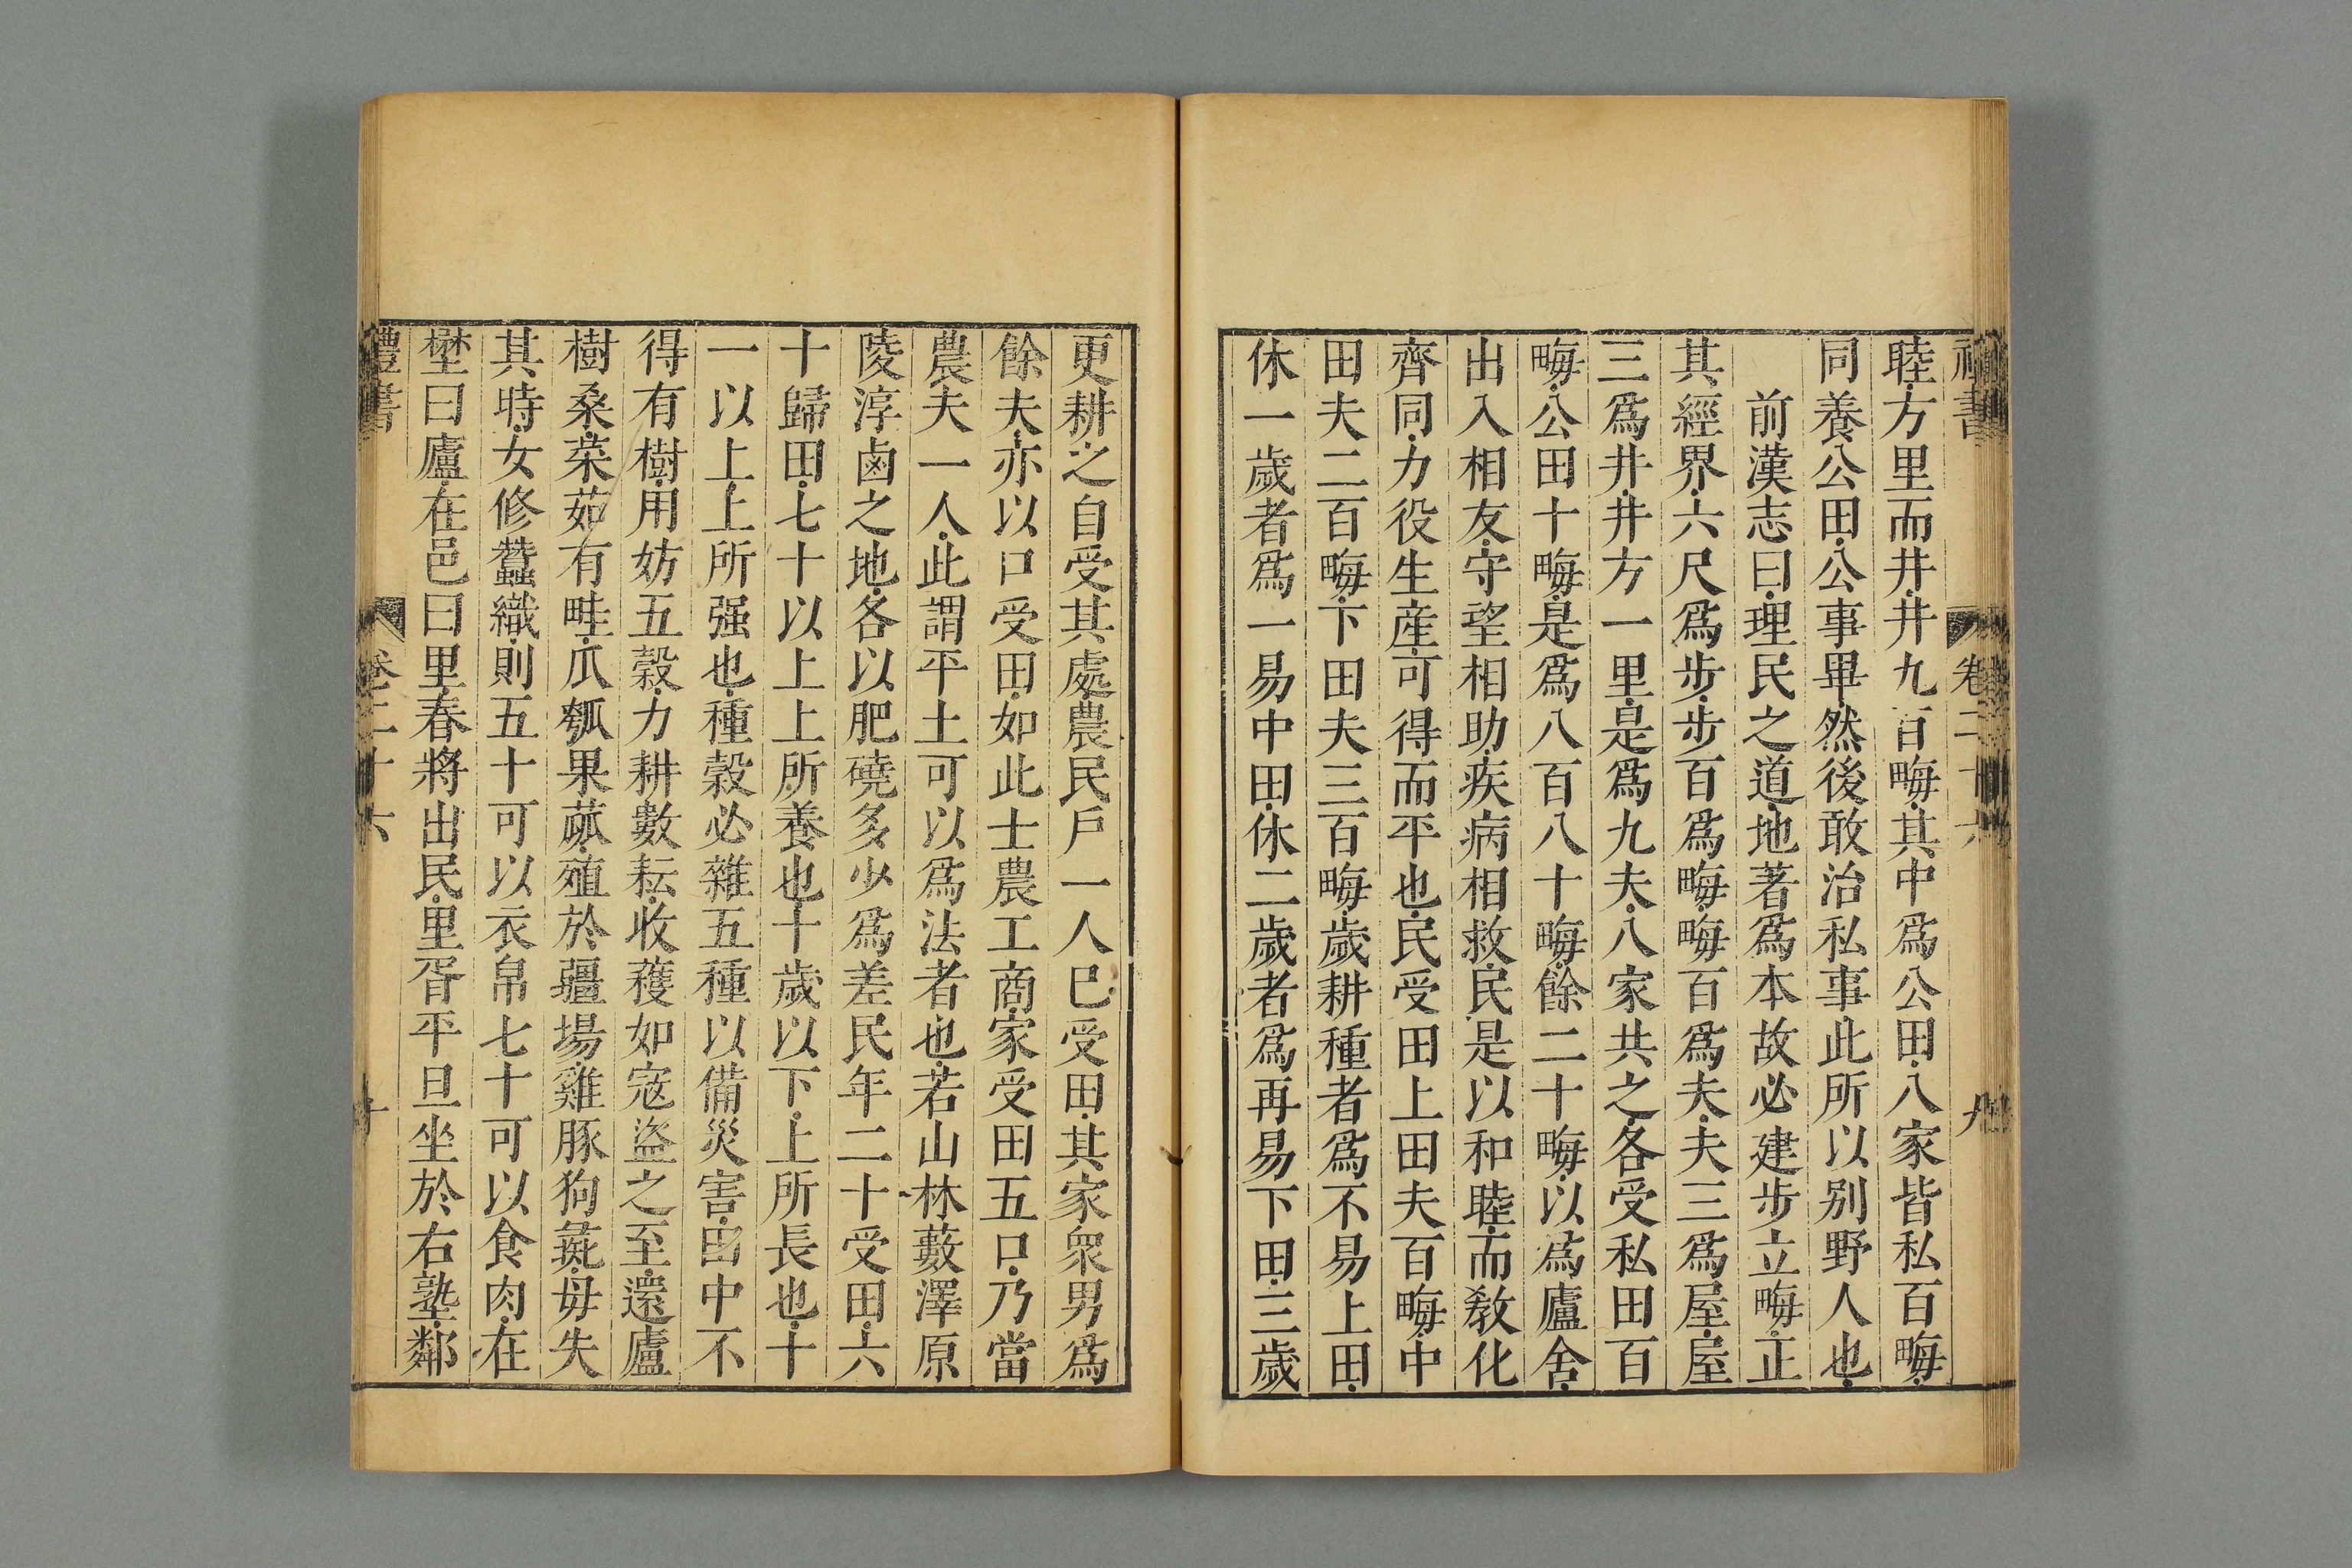 禮書 卷二十六 九
睦方里而井井九百畮其中爲公田八家皆私百畮
同養公田公事畢然後敢治私事此所以别野人也
前漢志曰理民之道地著爲本故必建步立畮正
其經界六尺爲步步百爲畮畮百爲夫夫三爲屋屋
三爲井井方一里是爲九夫八家共之各受私田百
畮公田十畮是爲八百八十畮餘二十畮以爲廬舍
出入相友守望相助疾病相救民是以和睦而教化
齊同力役生産可得而平也民受田上田夫百畮中
田夫二百畮下田夫三百畮歲耕種者爲不易上田
休一歲者爲一易中田休二歲者爲再易下田三歲
更耕之自受其處農民戶一人巳受田其家衆男爲
餘夫亦以口受田如此士農工商家受田五口乃當
農夫一人此謂平土可以爲法者也若山林藪澤原
陵淳鹵之地各以肥磽多少爲差民年二十受田六
十歸田七十以上上所養也十歲以下上所長也十
一以上上所强也種穀必雜五種以備災害田中不
得有樹用妨五穀力耕數耘收穫如寇盜之至還廬
樹桑菜茹有畦瓜瓠果蓏殖於疆場雞豚狗彘毋失
其時女修蠶織則五十可以衣帛七十可以食肉在
壄曰廬在邑曰里春將出民里胥平旦坐於右塾鄰
禮書 卷二十六 十